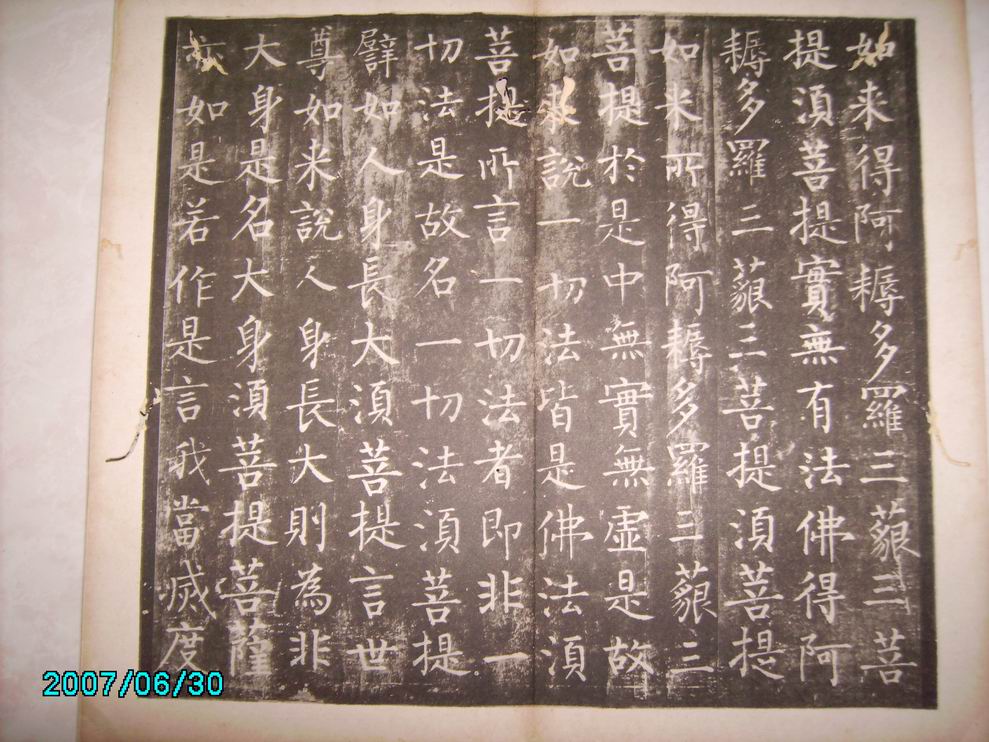 如来得阿耨多羅三藐三菩
提湏菩提實無有法佛得阿
耨多羅三藐三菩提湏菩提
如来所得阿耨多羅三藐三
菩提於是中無實無虚是故
如来說一切法皆是佛法湏
菩提所言一切法者即非一
切法是故名一切法湏菩提
譬如人身長大湏菩提言世
尊如来說人身長大則為非
大身是名大身湏菩提菩薩
亦如是若作是言我當滅度
2007/06/30